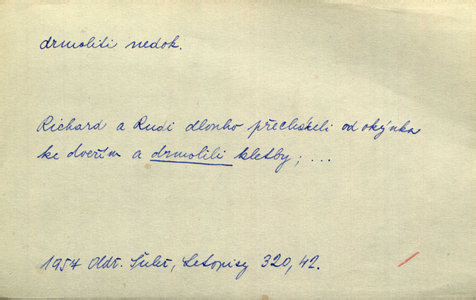 drmoliti nedok.
Richard a Rudi dlouho přecházeli od okýnka
ke dveřím a drmolili kletby; ...
1957 Odt. Šulc, Letopisy 320, 42.